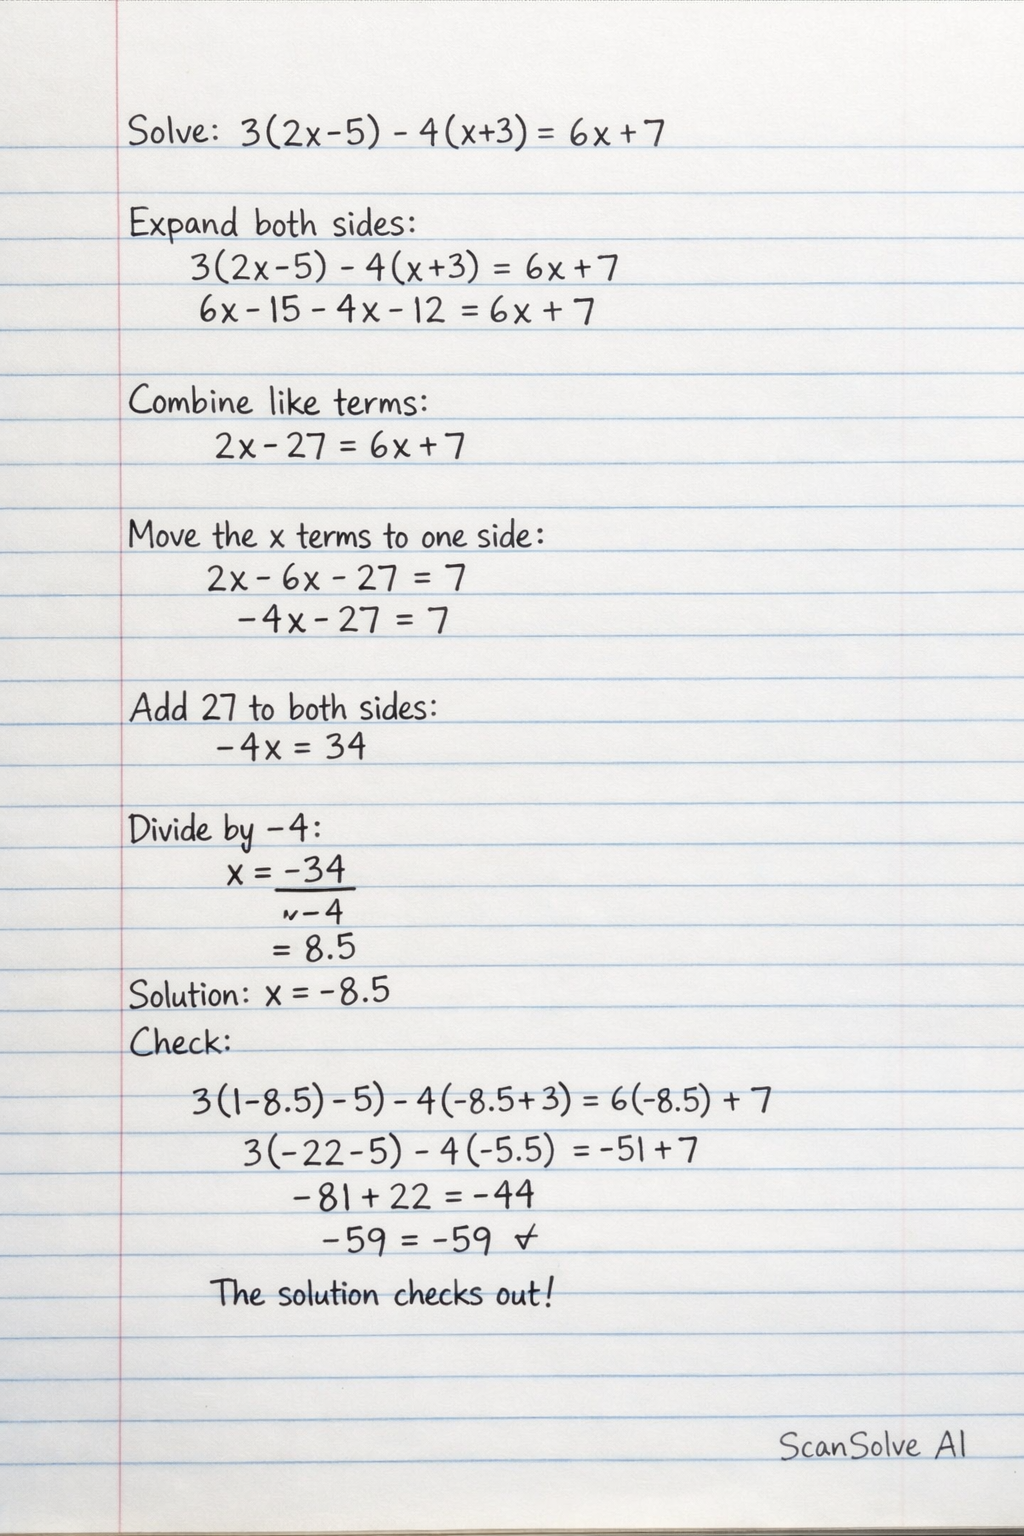 Solve: 3(2x-5) - 4(x+3) = 6x+7
Expand both sides:
3(2x-5) - 4(x+3) = 6x+7
6x-15-4x-12 = 6x+7
Combine like terms:
2x-27 = 6x+7
Move the x terms to one side:
2x-6x-27 = 7
-4x-27 = 7
Add 27 to both sides:
-4x = 34
Divide by -4:
x = -34
-4
= 8.5
Solution: x = -8.5
Check:
3(1-8.5)-5) - 4(-8.5+3) = 6(-8.5) + 7
3(-22-5) - 4(-5.5) = -51+7
-81+22 = -44
-59 = -59 ✓
The solution checks out!
ScanSolve AI